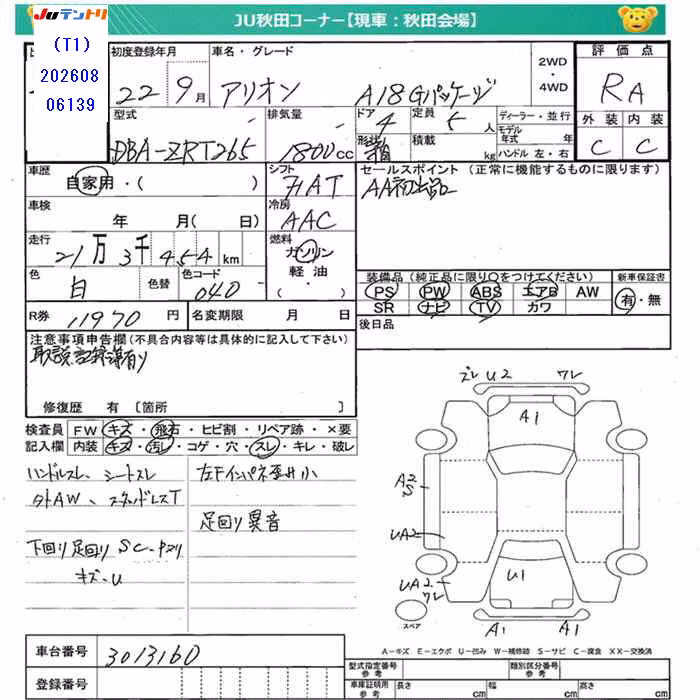 JUテントリ
JU秋田コーナー【現車：秋田会場】
(T1)
202608
06139
初度登録年月 車名・グレード 2WD ・ 4WD 評価点
22 9月 アリオン A18 Gパッケージ RA
型式 排気量 ドア 定員 ディーラー・並行 外装 内装
DBA-ZRT265 1800cc 4 5人 モデル年式 年
形状 箱 積載 kg ハンドル 左・右 C C
車歴 シフト セールスポイント（正常に機能するものに限ります）
自家用・( ) FAT AA初出品
車検 冷房
年 月( 日) AAC
走行 燃料
21万3千454km ガソリン
軽油・
( )
色 色替 色コード 装備品（純正品に限り○をつけてください） 新車保証書
白 040 PS PW ABS エアB AW 有・無
SR ナビ TV カワ
R券 11970円 名変期限 月 日 後日品
注意事項申告欄(不具合内容等は具体的に記入して下さい)
取説記録簿有り
修復歴 有 〔箇所 〕
検査員 FW キズ・飛石・ヒビ割・リペア跡・×要
記入欄 内装 キズ・汚レ・コゲ・穴・スレ・キレ・破レ
ハンドルスレ、シートスレ 左Fインパネ歪み小
外AW、スタッドレスT
足回り異音
下回り足回り SC
キズ・U
ズレ U2 ワレ
A1
A2
S
UA2
UA2
ワレ
U1
A1 A1
スペア
A－キズ E－エクボ U－凹み W－補修跡 S－サビ C－腐食 XX－交換済
車台番号 3013160
登録番号
型式指定番号 参考 類別区分番号 参考
車庫証明用 参考 長さ cm 幅 cm 高さ cm